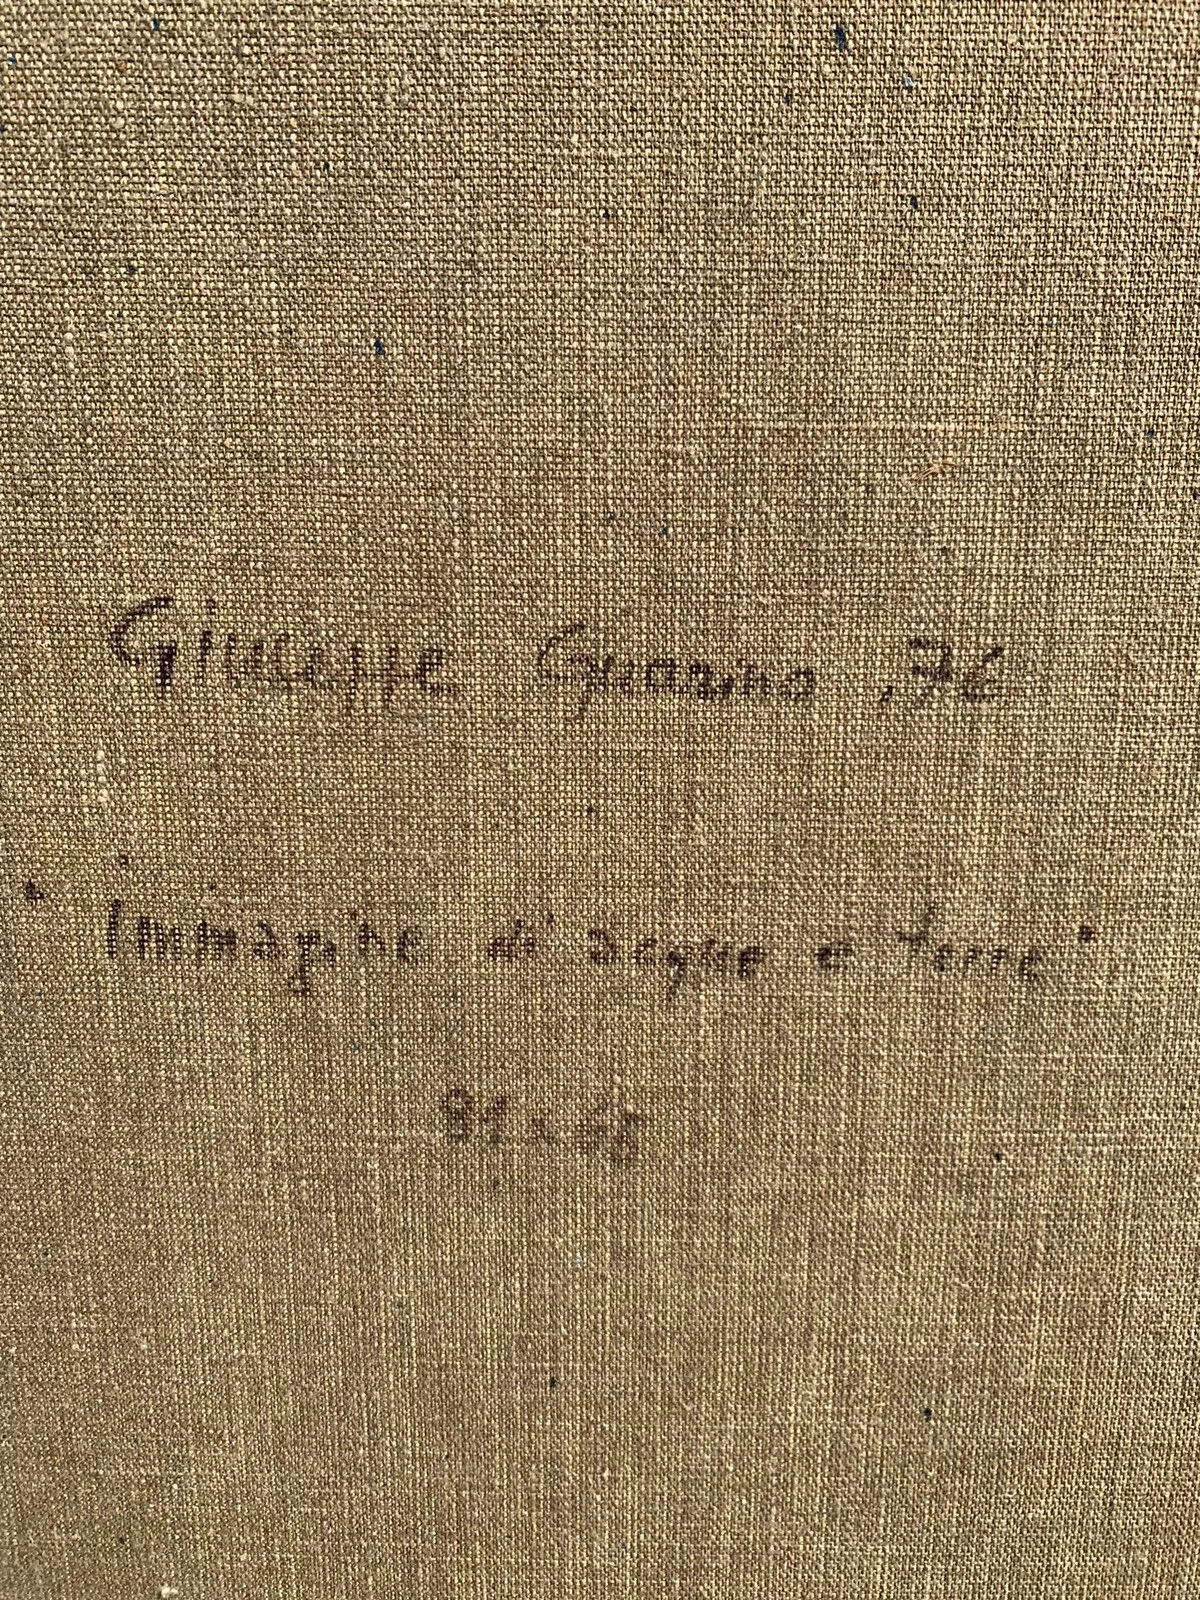 Giuseppe Guarino , 76
"immagine di acque e terre"
91 x 65